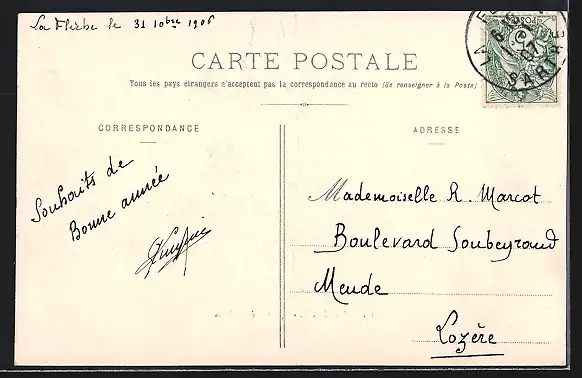 La Flèche le 31 10bre 1906
CARTE POSTALE
Tous les pays étrangers n'acceptent pas la correspondance au recto (Se renseigner à la Poste)
CORRESPONDANCE
ADRESSE
Souhaits de
Bonne année
Mademoiselle R. Marcot
Boulevard Soubeyrand
Mende
Lozère
SARTHE